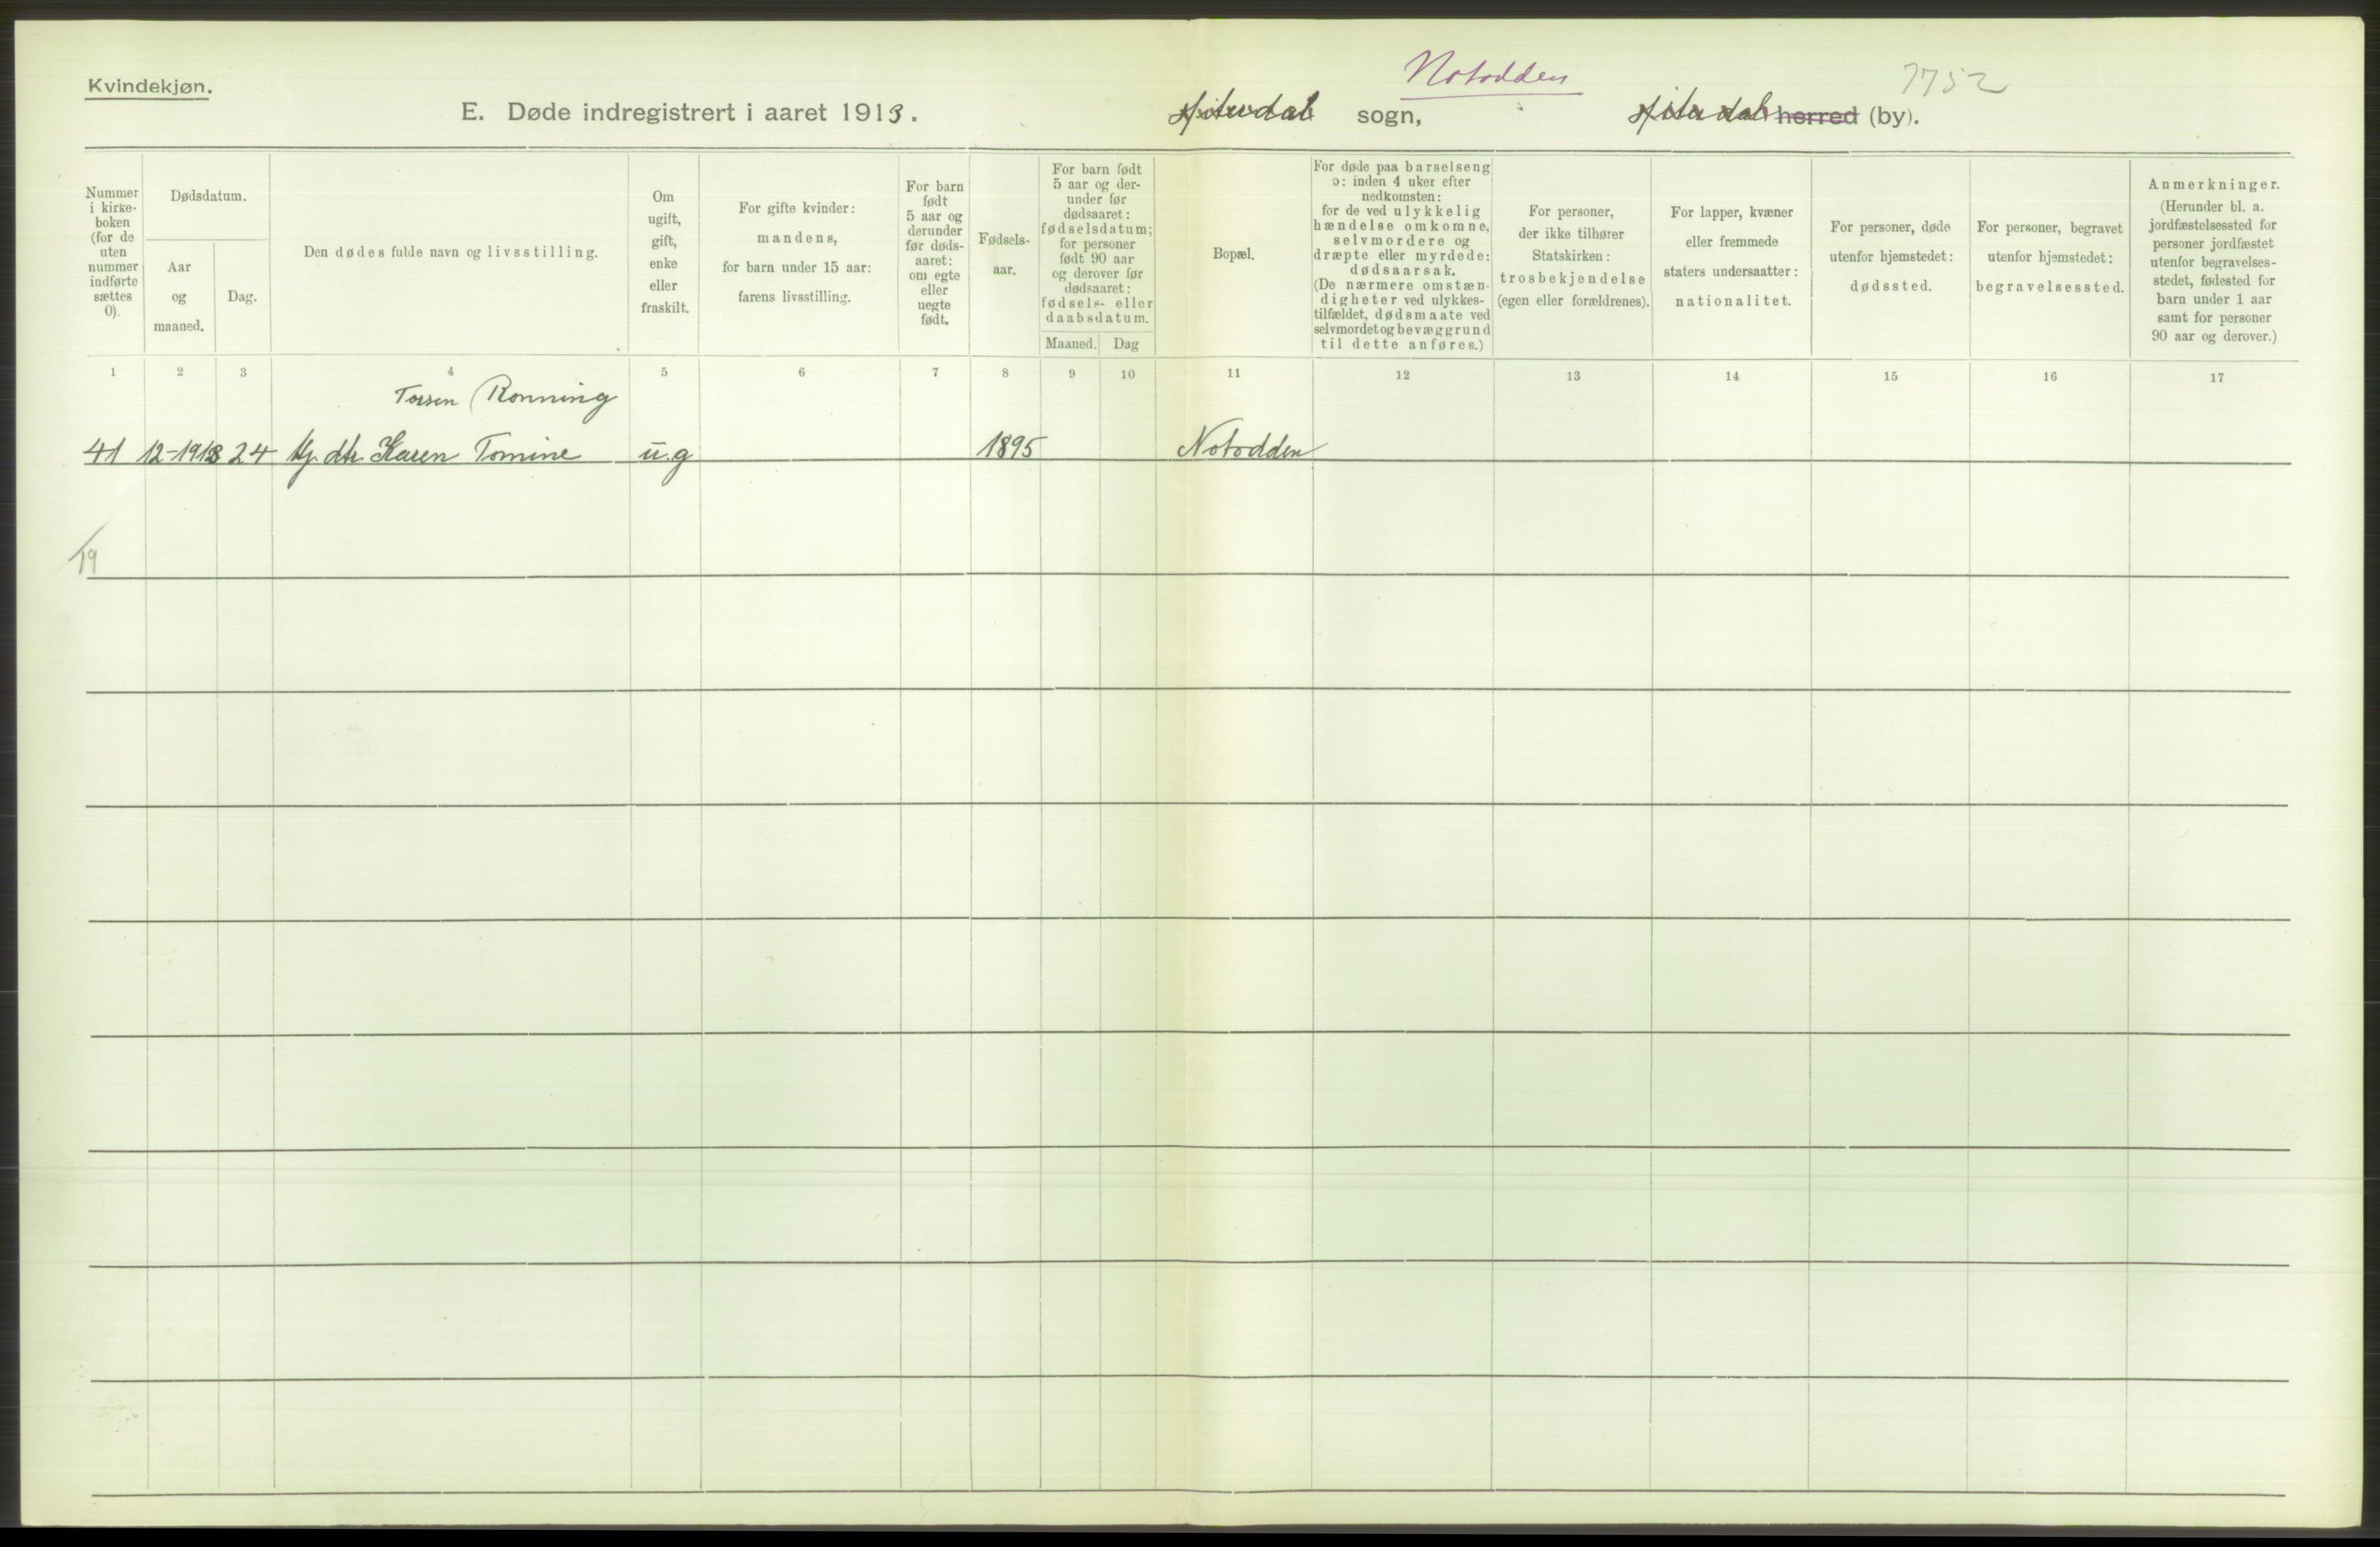 Kvindekjøn.
Notodden
7752
E. Døde indregistrert i aaret 1913.
Hiterdal sogn,
Hiterdal herred (by).
Nummer i kirke- boken (for de uten nummer indførte sættes 0).
Dødsdatum.
Aar og maaned.
Dag.
Den dødes fulde navn og livsstilling.
Om ugift, gift, enke eller fraskilt.
For gifte kvinder: mandens, for barn under 15 aar: farens livsstilling.
For barn født 5 aar og derunder før døds- aaret: om egte eller uegte født.
Fødsels- aar.
For barn født 5 aar og der- under før dødsaaret: fødselsdatum; for personer født 90 aar og derover før dødsaaret: fødsels- eller daabsdatum.
Maaned. Dag
Bopæl.
For døde paa barselseng ɔ: inden 4 uker efter nedkomsten: for de ved ulykkelig hændelse omkomne, selvmordere og dræpte eller myrdede: dødsaarsak. (De nærmere omstæn- digheter ved ulykkes- tilfældet, dødsmaate ved selvmordet og bevæggrund til dette anføres.)
For personer, der ikke tilhører Statskirken: trosbekjendelse (egen eller forældrenes).
For lapper, kvæner eller fremmede staters undersaatter: nationalitet.
For personer, døde utenfor hjemstedet: dødssted.
For personer, begravet utenfor hjemstedet: begravelsessted.
Anmerkninger. (Herunder bl. a. jordfæstelsessted for personer jordfæstet utenfor begravelses- stedet, fødested for barn under 1 aar samt for personer 90 aar og derover.)
1 2 3 4 5 6 7 8 9 10 11 12 13 14 15 16 17
Rønning
41 12-1913 24 dtr. Karen Tomine u.g 1895 Notodden
19